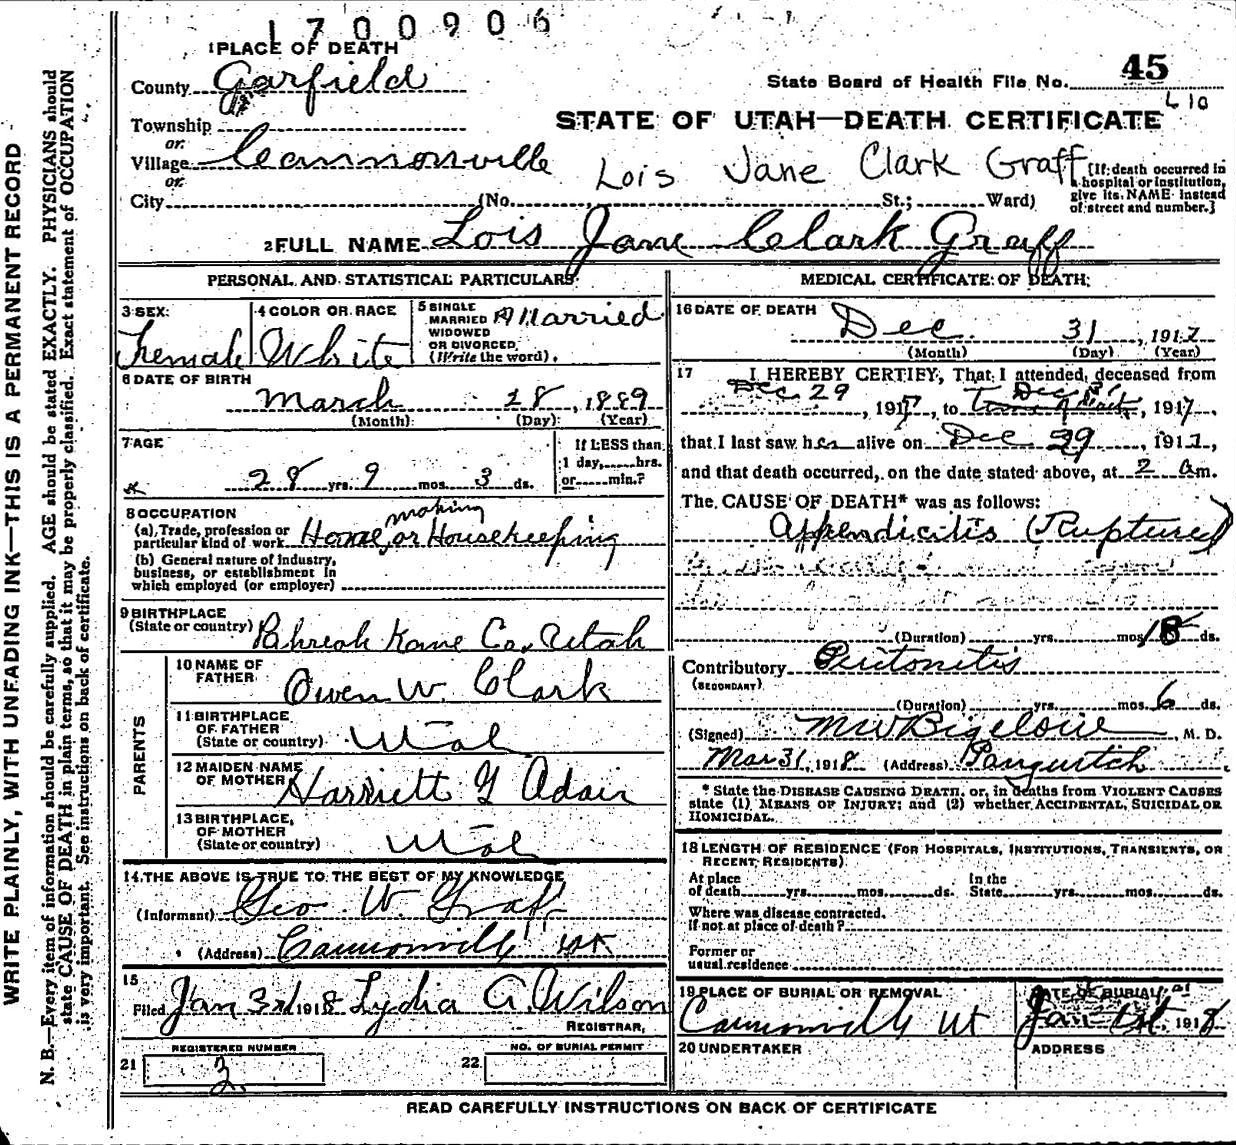 1700906
1 PLACE OF DEATH
County Garfield
State Board of Health File No. 45
L 10
Township
or
STATE OF UTAH—DEATH CERTIFICATE
Village Cannonville
Lois Jane Clark Graff
or
City (No. St.; Ward)
[If death occurred in
a hospital or institution,
give its NAME instead
of street and number.]
2 FULL NAME Lois Jane Clark Graff
PERSONAL AND STATISTICAL PARTICULARS
3 SEX
Female
4 COLOR OR RACE
White
5 SINGLE
MARRIED
WIDOWED
OR DIVORCED
(Write the word)
Married
6 DATE OF BIRTH
March 28, 1889
(Month) (Day) (Year)
7 AGE
28 yrs. 9 mos. 3 ds.
If LESS than
1 day, hrs.
or min.?
8 OCCUPATION
(a) Trade, profession or
particular kind of work Home making or Housekeeping
(b) General nature of industry,
business, or establishment in
which employed (or employer)
9 BIRTHPLACE
(State or country) Pahreah Kane Co. Utah
PARENTS
10 NAME OF
FATHER Owen W. Clark
11 BIRTHPLACE
OF FATHER
(State or country) Utah
12 MAIDEN NAME
OF MOTHER Harriett Y Adair
13 BIRTHPLACE
OF MOTHER
(State or country) Utah
14 THE ABOVE IS TRUE TO THE BEST OF MY KNOWLEDGE
(Informant) Geo W. Graff
(Address) Cannonville Ut
15
Filed Jan 3rd 1918 Lydia A. Wilson
REGISTRAR,
21 REGISTERED NUMBER
2
22 NO. OF BURIAL PERMIT
MEDICAL CERTIFICATE OF DEATH
16 DATE OF DEATH
Dec. 31, 1917
(Month) (Day) (Year)
17 I HEREBY CERTIFY, That I attended deceased from
Dec 29, 1917, to Dec 31, 1917,
that I last saw her alive on Dec 29, 1917,
and that death occurred, on the date stated above, at 2 a m.
The CAUSE OF DEATH* was as follows:
Appendicitis (Ruptured)
(Duration) yrs. mos. 18 ds.
Contributory Peritonitis
(SECONDARY)
(Duration) yrs. mos. 6 ds.
(Signed) M W Bigelow, M. D.
Mar 31, 1918 (Address) Panguitch
* State the DISEASE CAUSING DEATH, or, in deaths from VIOLENT CAUSES
state (1) MEANS OF INJURY; and (2) whether ACCIDENTAL, SUICIDAL OR
HOMICIDAL.
18 LENGTH OF RESIDENCE (FOR HOSPITALS, INSTITUTIONS, TRANSIENTS, OR
RECENT RESIDENTS)
At place
of death yrs. mos. ds.
In the
State yrs. mos. ds.
Where was disease contracted,
If not at place of death?
Former or
usual residence
19 PLACE OF BURIAL OR REMOVAL
Cannonville Ut
DATE OF BURIAL
Jan 1st, 1918
20 UNDERTAKER
ADDRESS
READ CAREFULLY INSTRUCTIONS ON BACK OF CERTIFICATE
WRITE PLAINLY, WITH UNFADING INK—THIS IS A PERMANENT RECORD
N. B.—Every item of information should be carefully supplied. AGE should be stated EXACTLY. PHYSICIANS should
state CAUSE OF DEATH in plain terms, so that it may be properly classified. Exact statement of OCCUPATION
is very important. See instructions on back of certificate.